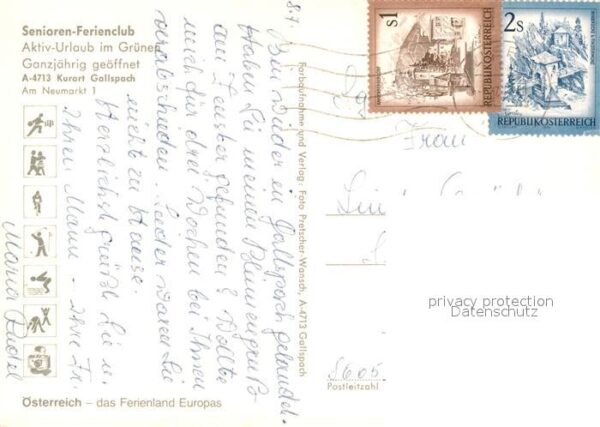 Senioren-Ferienclub
Aktiv-Urlaub im Grünen
Ganzjährig geöffnet
A-4713 Kurort Gallspach
Am Neumarkt 1
87.
Bin wieder in Gallspach gelandet.
Haben Sie meinen Blumengruß
am Fenster gefunden? Wollte
mich für drei Wochen bei Ihnen
verabschieden. Leider waren Sie
nicht zu Hause.
Herzlichst grüßt Sie u.
Ihren Mann - Ihre Fr.
Maria
Farbaufnahme und Verlag: Foto Pretscher-Wansch, A-4713 Gallspach
s1
REPUBLIK ÖSTERREICH
2s
REPUBLIK ÖSTERREICH
Frau
privacy protection
Datenschutz
8605
Postleitzahl
Österreich – das Ferienland Europas